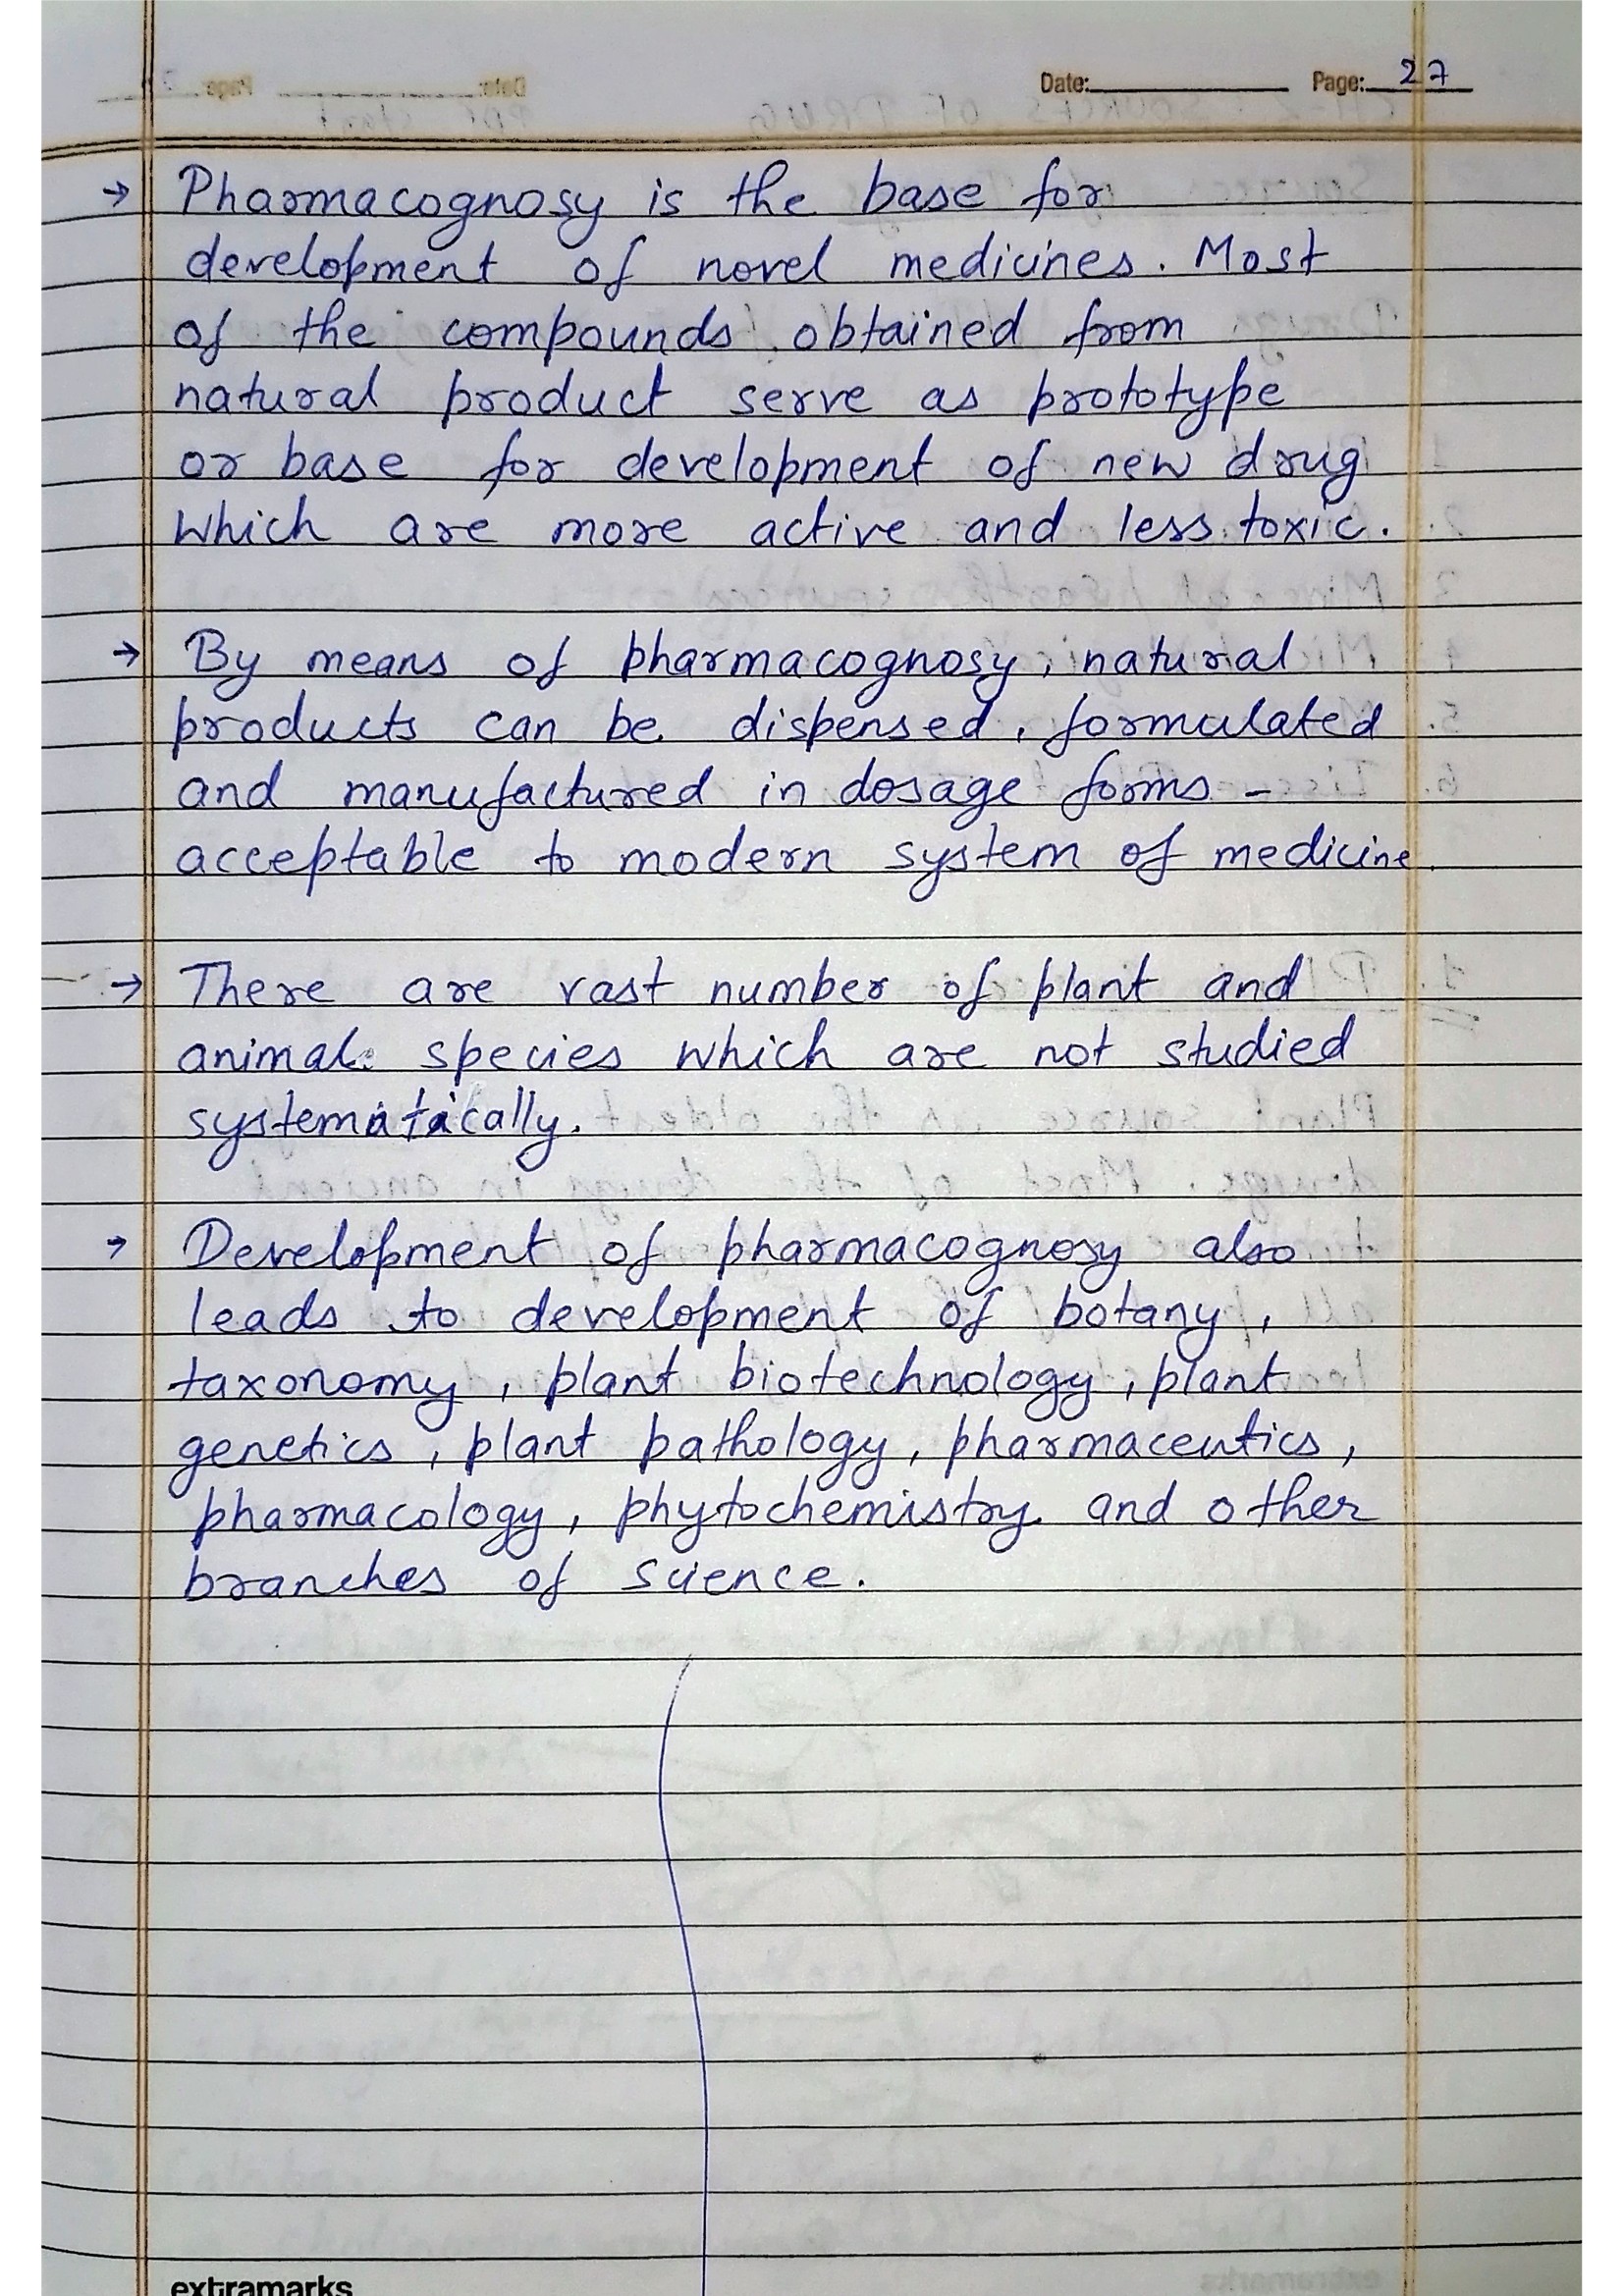 Date: Page: 27
→ Pharmacognosy is the base for
development of novel medicines. Most
of the compounds obtained from
natural product serve as prototype
or base for development of new drug
which are more active and less toxic.
→ By means of pharmacognosy, natural
products can be dispensed, formulated
and manufactured in dosage forms -
acceptable to modern system of medicine.
→ There are vast number of plant and
animal species which are not studied
systematically.
→ Development of pharmacognosy also
leads to development of botany,
taxonomy, plant biotechnology, plant
genetics, plant pathology, pharmaceutics,
pharmacology, phytochemistry and other
branches of science.
extramarks